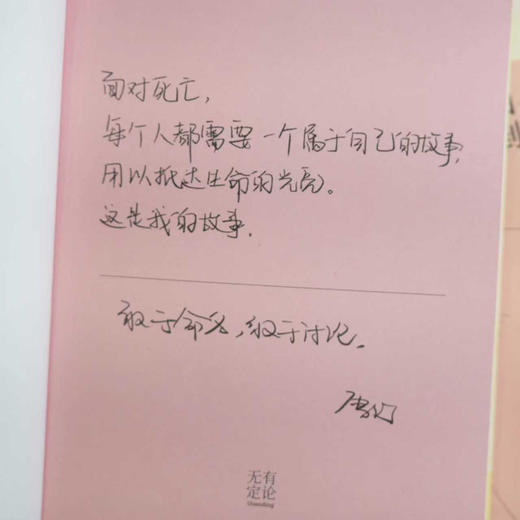 面对死亡，
每个人都需要一个属于自己的故事，
用以抵达生命的光亮。
这是我的故事。
敢于命名，敢于讨论。
无有
定论
Unending